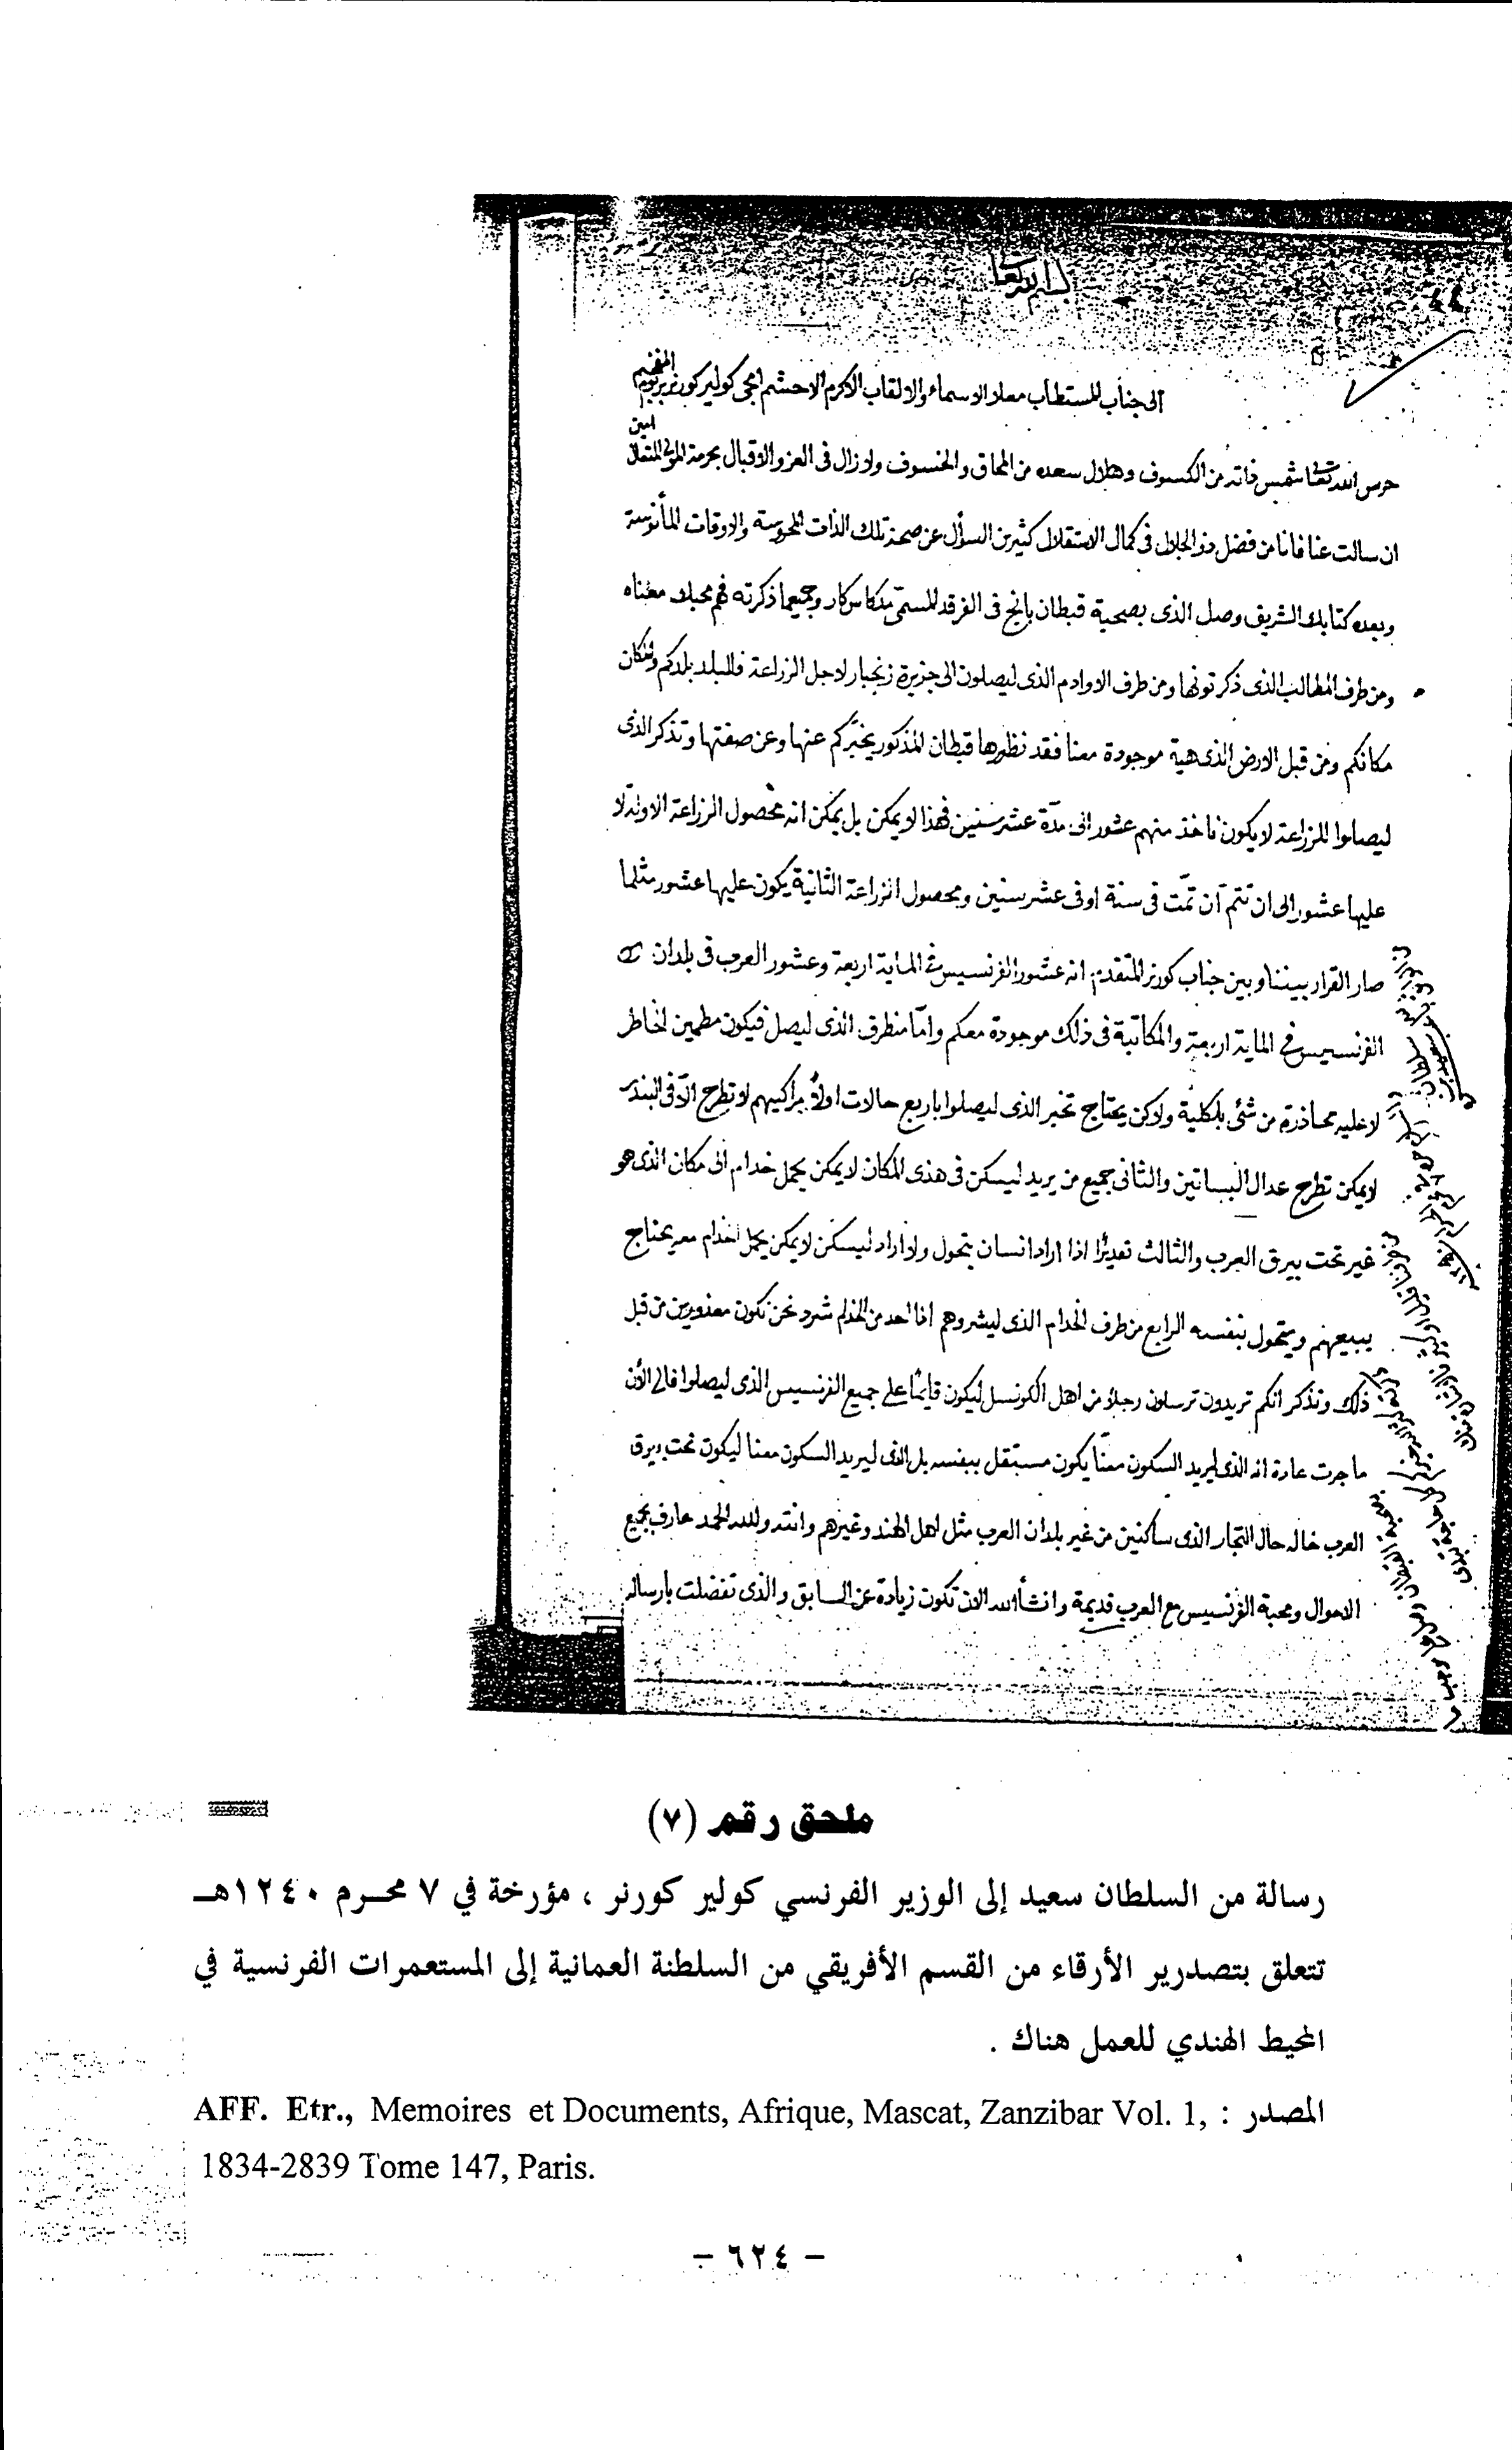 بسم الله تعالى
٤٤
الى جناب المستطاب معلا الاسماء والالقاب الاكرم الاحشم المحب كولير كورنر المفخم
حرس الله تعالى شمس ذاته من الكسوف وهلال سعده من المحاق والخسوف ولا زال في العز والاقبال بحرمة المولى المتعال امين
ان سالت عنا فانا من فضل ذو الجلال في كمال الاستقلال كثيرين السؤل عن صحة تلك الذات المحروسة والاوقات المأنوسة
وبعده كتابك الشريف وصل الذى بصحبة قبطان بانج في الفرقد المسمى وجميعما ذكرته فهم محبك معناه
ومن طرف المطالب الذى ذكرتونها ومن طرف الاوادم الذى ليصلون الى جزيرة زنجبار لاجل الزراعة فالبلد بلدكم والمكان
مكانكم ومن قبل الارض الذى هية موجودة معنا فقد نظورها قبطان المذكور يخبركم عنها وعن صفتها وتذكر الذى
ليصلوا للزراعة لا يكون ناخذ منهم عشور الى مدة عشر سنين فهذا لا يمكن بل يمكن انه محصول الزراعة الاولة لا
عليها عشور الى ان تتم آن تمت في سنة او في عشر سنين ومحصول الزراعة الثانية يكون عليها عشور مثلما
صار القرار بيننا وبين جناب كورنر المتقدم انه عشور الفرنسيس في الماية اربعة وعشور العرب في بلدان
الفرنسيس في الماية اربعة والمكاتبة في ذلك موجودة معكم وامّا منطرف الذى ليصل فيكون مطمين الخاطر
لا عليه محاذرة من شئ بلكلية ولاكن يحتاج تخبر الذى ليصلوا باربع حالات اولاً مراكبهم لا تطرح الاّ في البندر
لا يمكن تطرح عدال البساتين والثانى جميع من يريد ليسكن في هذى المكان لا يمكن يحمل خدام الى مكان الذى هو
غير تحت بيرق العرب والثالث تقديرًا اذا اراد انسان يتحول ولا اراد ليسكن لا يمكن يحمل اخدام معه يحتاج
يبيعهم ويتحول بنفسه الرابع من طرف الخدام الذى ليشروهم اذا احد من الخدام شرد نحن نكون معذورين من قبل
ذلك وتذكر انكم تريدون ترسلون رجلا من اهل الكونسل ليكون قايمًا على جميع الفرنسيس الذى ليصلوا فالى الأن
ما جرت عادة انه الذى ليريد السكون معنا يكون مستقل بنفسه بل الذى ليريد السكون معنا ليكون تحت بيرق
العرب خاله حال التجار الذى ساكنين من غير بلدان العرب مثل اهل الهند وغيرهم وانته ولله الحمد عارف بجميع
الاحوال ومحبة الفرنسيس مع العرب قديمة وانشأ الله الان تكون زيادة عن السابق والذى تفضلت بارساله
ملحق رقم (٧)
رسالة من السلطان سعيد إلى الوزير الفرنسي كولير كورنر ، مؤرخة في ٧ محــرم ١٢٤٠هــ
تتعلق بتصدرير الأرقاء من القسم الأفريقي من السلطنة العمانية إلى المستعمرات الفرنسية في
المحيط الهندي للعمل هناك .
المصدر : AFF. Etr., Memoires et Documents, Afrique, Mascat, Zanzibar Vol. 1,
1834-2839 Tome 147, Paris.
– ٦٢٤ –